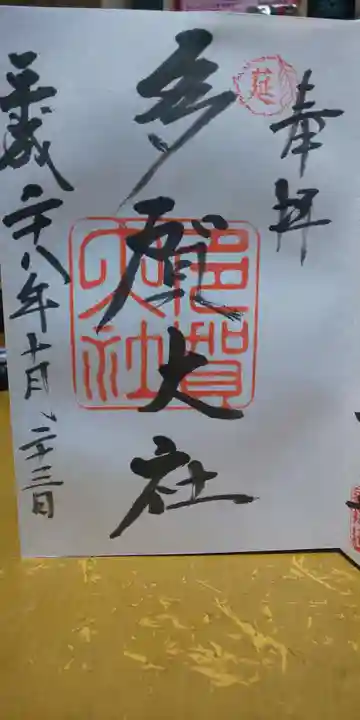 奉拝
延
多賀大社
多賀大社
平成二十八年十月二十三日